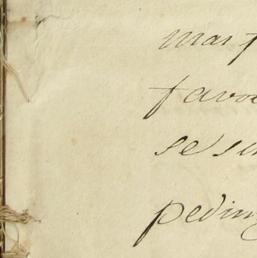 mas f
favo
se su
pedim